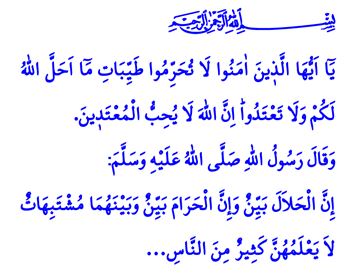 بِسْمِ اللّٰهِ الرَّحْمٰنِ الرَّحِيمِ
يَٓا اَيُّهَا الَّذ۪ينَ اٰمَنُوا لَا تُحَرِّمُوا طَيِّبَاتِ مَٓا اَحَلَّ اللّٰهُ
لَكُمْ وَلَا تَعْتَدُواۜ اِنَّ اللّٰهَ لَا يُحِبُّ الْمُعْتَد۪ينَ.
وَقَالَ رَسُولُ اللّٰهِ صَلَّى اللّٰهُ عَلَيْهِ وَسَلَّمَ:
إِنَّ الْحَلاَلَ بَيِّنٌ وَإِنَّ الْحَرَامَ بَيِّنٌ وَبَيْنَهُمَا مُشْتَبِهَاتٌ
لاَ يَعْلَمُهُنَّ كَثِيرٌ مِنَ النَّاسِ...